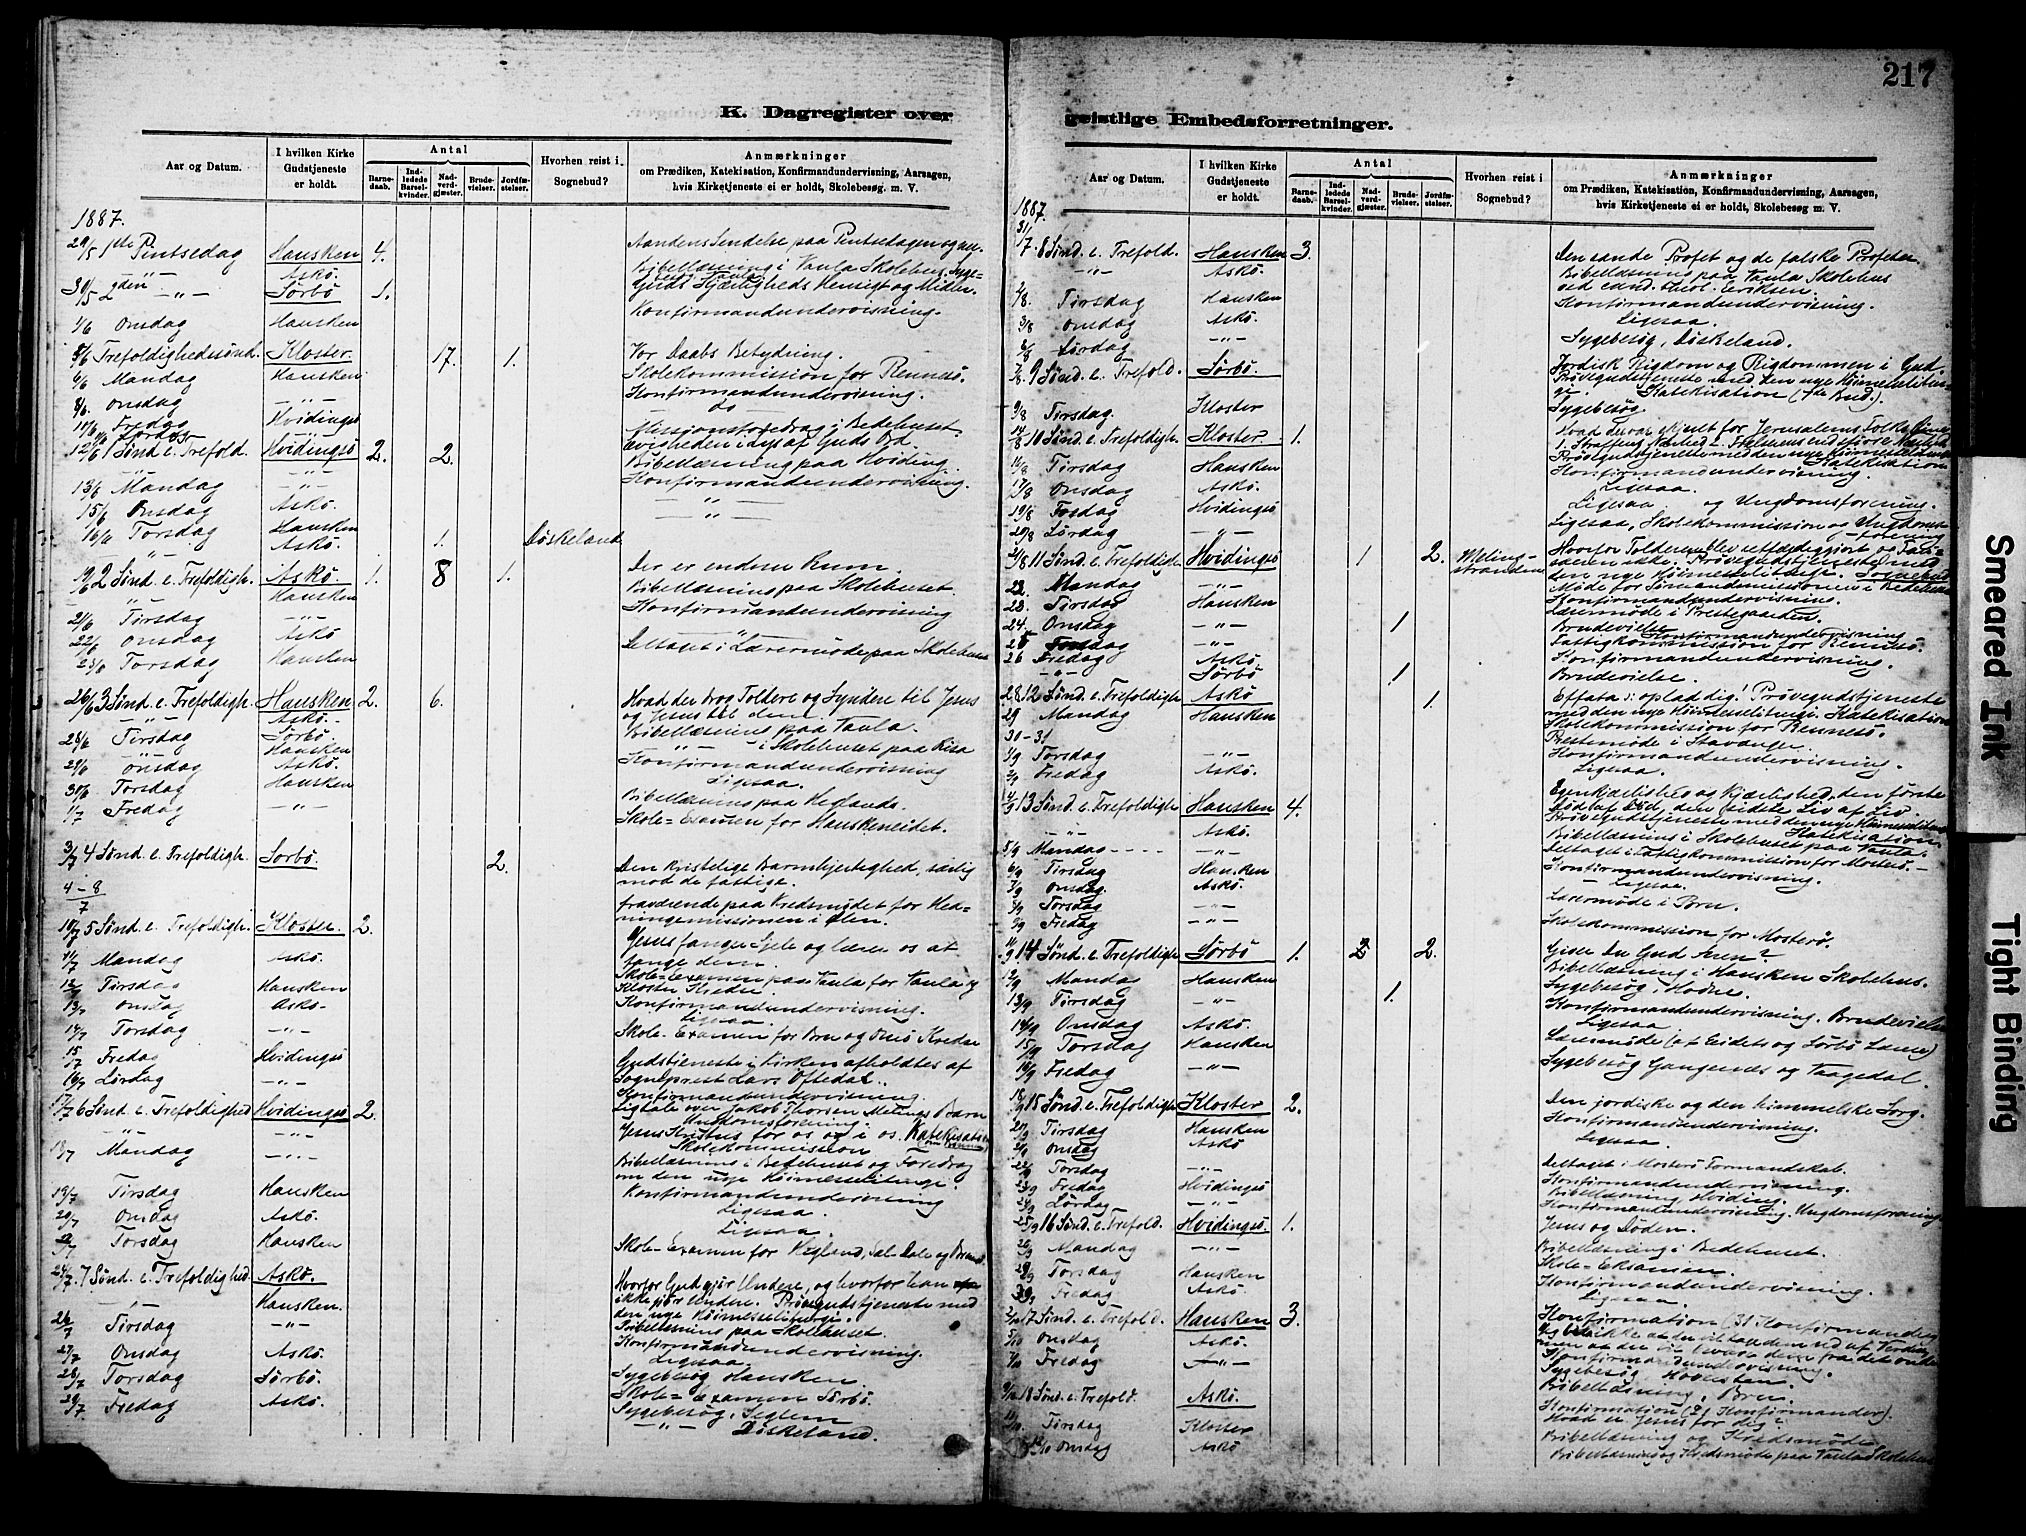 217
K. Dagregister over
geistlige Embedsforretninger.
Aar og Datum.
I hvilken Kirke Gudstjeneste er holdt.
Antal
Barnedaab.
Indledede Barselkvinder.
Nadverdgjæster.
Brudevielser.
Jordfæstelser.
Hvorhen reist i Sognebud?
Anmærkninger
om Prædiken, Katekisation, Konfirmandundervisning, Aarsagen,
hvis Kirketjeneste ei er holdt, Skolebesøg m. V.
1887.
29/5 1ste Pintsedag Hausken 4. Aandens Sendelse paa Pintsedagen og nu.
Askö. Bibellæsning i Vaula Skolehus.
30/5 2den -"- Sörbö 1. Guds Kjærligheds Hensigt og Midler.
1/6 Onsdag Hausken Konfirmandundervisning.
5/6 Trefoldighedssönd. Kloster. 17. 1. Vor Daabs Betydning.
6/6 Mandag Hausken Skolekommission for Rennesö.
8/6. Onsdag -"- Konfirmandundervisning.
10/6 Fredag Hvidingsö do
11/6 Lördag Missionsforedrag i Bedehuset.
12/6 1 Sønd. e. Trefold. Hvidingsö 2. 2. Evigheden i Lys af Guds Ord.
-"- Bibellæsning paa Hviding.
13/6 Mandag -"- Konfirmandundervisning.
15/6 Onsdag Askö. -"-
16/6 Torsdag Hausken
-"- Askö. 1. Döskeland
19/6 2 Sønd. e. Trefoldigh. Askö. 1. 8 1. Der er endnu Rum.
-"- Hausken Bibellæsning paa Skolehuset.
21/6 Tirsdag -"- Konfirmandundervisning
22/6 Onsdag Askö -"-
23/6 Torsdag Hausken Deltaget i Lærermöde paa Skolehuset
26/6 3 Sønd. e. Trefoldigh. Hausken 2. 6. Hvad der drog Toldere og Syndere til Jesus
og Jesus til dem.
-"- Askö. Bibellæsning paa Vaula.
28/6 Tirsdag Sörbö. -"- i Skolehuset paa Risa
Hausken Konfirmandundervisning
29/6 Onsdag Askö. Ligesaa.
30/6 Torsdag Hausken Bibellæsning paa Heglands.
1/7 Fredag -"- Skole-Examen for Hauskeneidet.
3/7 4 Sønd. e. Trefoldigh. Sorbö. 2. Den kristelige Barmhjertighed, særlig
mod de fattige.
4-8/7 fraværende paa Kredsmödet for Hed-
ningemissionen i Ølen.
10/7 5 Sønd. e. Trefoldigh. Kloster. 2. Jesus fanger Sjele og lærer os at
fange dem.
11/7 Mandag Askö. Skole-Examen paa Vaula for Vaula og
Kloster Kredse.
12/7 Tirsdag Hausken Konfirmandundervisning.
13/7 Onsdag Askö. Ligesaa.
14/7 Torsdag -"- Skole-Examen for Bru og Kredse
15/7 Fredag Hvidingsö Gudstjeneste i Kirken afholdtes af
Sogneprest Lars Oftedal.
16/7 Lørdag -"- Konfirmandundervisning.
17/7 6 Sønd. e. Trefoldighed Hvidingsö 2. Ligtale over Jakob Thorsen Melings Barn
Ungdomsforening.
-"- -"- Jesus Kristus for os og i os. Katekisation
Skolekommission
18/7 Mandag -"- Bibellæsning i Bedehuset og Foredrag
om den nye Höimesseliturgi.
19/7 Tirsdag Hausken Konfirmandundervisning
20/7 Onsdag Askö. Ligesaa.
21/7 Torsdag Hausken Ligesaa.
Skole-Examen for Hegland, Dale og
24/7. 7 Sønd. e. Trefoldighed. Askö. Hvorfor Gud gjør Undere, og hvorfor han
ikke gjør Undere. Prøvegudstjeneste med
den nye Höimesseliturgi.
-"- Hausken. Bibellæsning paa Skolehuset.
26/7 Tirsdag -"- Konfirmandundervisning.
27/7 Onsdag Askö. Ligesaa.
28/7 Torsdag Sørbö. Sygebesög Hausken.
Skole-Examen Sörbö.
29/7 Fredag Askö. Sygebesög, Seglem
-"- Döskeland.
Aar og Datum.
I hvilken Kirke Gudstjeneste er holdt.
Antal
Barnedaab.
Indledede Barselkvinder.
Nadverdgjæster.
Brudevielser.
Jordfæstelser.
Hvorhen reist i Sognebud?
Anmærkninger
om Prædiken, Katekisation, Konfirmandundervisning, Aarsagen,
hvis Kirketjeneste ei er holdt, Skolebesøg m. V.
1887.
31/7. 8 Sønd. e. Trefold. Hausken 3. Den sande Profet og de falske Profeter.
-"- Askö. Bibellæsning paa Vaula Skolehus
ved cand. theol. Eriksen.
2/8. Tirsdag Hausken Konfirmandundervisning.
3/8 Onsdag Askö. Ligesaa.
6/8 Lørdag -"- Sygebesög, Döskeland.
7/8. 9 Sønd. e. Trefold. Sörbö. Jordisk Rigdom og Rigdommen i Gud.
Prøvegudstjeneste med den nye Höimesseliturgi. Katekisation (7de Bud).
9/8 Tirsdag. Kloster Sygebesög
14/8 10 Sønd. e. Trefoldigh. Kloster. 1. Hvad der var skjult for Jerusalems Folk
Prøvegudstjeneste med den nye Höimesseliturgi
Katekisation
16/8 Tirsdag Hausken Konfirmandundervisning
17/8 Onsdag Askö. Ligesaa.
19/8 Fredag Hvidingsö Ligesaa. og Ungdomsforening.
20/8 Lørdag -"- Ligesaa, Skolekommission og Ungdoms-
forening
21/8 11 Sønd. e. Trefoldigh. Hvidingsö 1 2. Meling-
stranden Hvorfor Tolderen blev retfærdiggjort og Fari-
sæeren ikke. Prøvegudstjeneste med
den nye Höimesseliturgi.
22. Mandag -"- Möde for Sömandsmissionen i Bedehuset
23. Tirsdag Hausken Konfirmandundervisning.
Læremöde i Prestegaarden.
24. Onsdag -"- 1 Brudevielse
Konfirmandundervisning
25 Torsdag -"- Fattigkommission for Rennesö.
26 Fredag Askö Konfirmandundervisning.
-"- Sörbö 1 Brudevielse.
28. 12 Sønd. e. Trefoldigh. Askö 1. Effata ɔ: oplad dig! Prøvegudstjeneste
med den nye Höimesseliturgi. Katekisation
29 Mandag Hausken Skolekommission for Rennesö.
30-31 Prestemöde i Stavanger.
1/9 Torsdag -"- Konfirmandundervisning.
2/9 Fredag Askö. Ligesaa.
4/9 13 Sønd. e. Trefoldigh. Hausken 4. Egenkjærlighed og Kjærlighed, den første
Død af Død, den sidste Liv af Liv.
Prøvegudstjeneste med den nye Höimesseliturgi
Katekisation.
-"- Askö. Bibellæsning i Skolehuset paa Vaula.
5/9 Mandag -"- Deltaget i Fattigkommission for Mosterö.
6/9 Tirsdag Hausken Konfirmandundervisning.
7/9 Onsdag. Askö. Ligesaa.
8/9 Torsdag -"- Læsemöde i Bru.
9/9 Fredag -"- Skolekommission for Mosterö.
11/9 14 Sønd. e. Trefoldigh. Sörbö 1. 2 2. Giver Du Gud Ære?
12/9 Mandag Hausken Bibellæsning i Hausken Skolehus.
Sygebesög, Hodne.
13/9 Tirsdag -"- 1. Konfirmandundervisning. Brudevielse
14/9 Onsdag Askö. Ligesaa
15/9 Torsdag Hausken Læsemöde
16/9 Fredag -"- Sygebesög Gangenæs og Vaagedal.
18/9 15 Sønd. e. Trefoldigh. Kloster 2. Den jordiske og den himmelske Sorg.
20/9 Tirsdag Hausken Konfirmandundervisning.
21/9 Onsdag Askö Ligesaa.
22/9 Torsdag -"- Deltaget i Mosterö Formandskab.
23/9 Fredag Hvidingsö Konfirmandundervisning.
Bibellæsning Hviding.
24/9 Lørdag -"- Konfirmandundervisning. Ungdomsforening
25/9 16 Sønd. e. Trefold. Hvidingsö. 1. Jesus og Døden.
26/9 Mandag -"- Bibellæsning i Bedehuset.
Skole-Eksamen.
29/9 Torsdag Hausken Konfirmandundervisning.
30/9 Fredag Askö. Ligesaa.
2/10 17 Sønd. e. Trefold. Hausken 3. Konfirmation (31 Konfirmander)
Jeg beder ikke at du vil tage dem ud af Verden,
men at du vil bevare dem fra det onde
5/10 Onsdag Askö. Konfirmandundervisning.
7/10 Fredag -"- Sygebesög
Bibellæsning, Bru.
9/10 18 Sønd. e. Trefold. Askö. Konfirmation (21 Konfirmander).
Hvad er Jesus for dig?
11/10. Tirsdag Kloster Bibellæsning og Kredsmöde
12/10 Onsdag Askö Bibellæsning og Kredsmöde paa Vaula Skolehus
Smeared Ink
Tight Binding